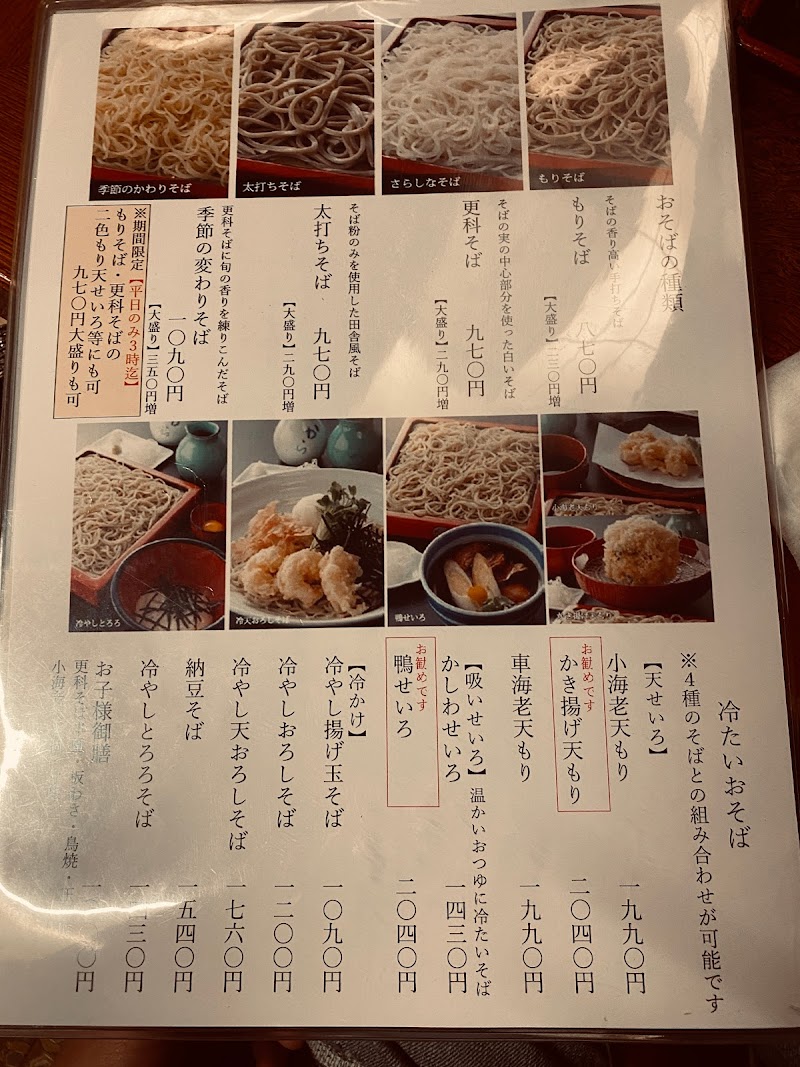 もりそば
さらしなそば
太打ちそば
季節のかわりそば
おそばの種類
そばの香り高い手打ちそば
もりそば 八七〇円
【大盛り】二三〇円増
そばの実の中心部分を使った白いそば
更科そば 九七〇円
【大盛り】二九〇円増
そば粉のみを使用した田舎風そば
太打ちそば 九七〇円
【大盛り】二九〇円増
更科そばに旬の香りを練りこんだそば
季節の変わりそば 一〇九〇円
【大盛り】三五〇円増
※期間限定【平日のみ3時迄】
もりそば・更科そばの
二色もり天せいろ等にも可
九七〇円大盛りも可
小海老天もり
鴨せいろ
冷天おろしそば
冷やしとろろ
冷たいおそば
※4種のそばとの組み合わせが可能です
【天せいろ】
小海老天もり 一九九〇円
お勧めです
かき揚げ天もり 二〇四〇円
車海老天もり 一九九〇円
【吸いせいろ】温かいおつゆに冷たいそば
かしわせいろ 一四三〇円
お勧めです
鴨せいろ 二〇四〇円
【冷かけ】
冷やし揚げ玉そば 一〇九〇円
冷やしおろしそば 一二〇〇円
冷やし天おろしそば 一七六〇円
納豆そば 一五四〇円
冷やしとろろそば 一四三〇円
お子様御膳
更科そば 板わさ・鳥焼・
小海老